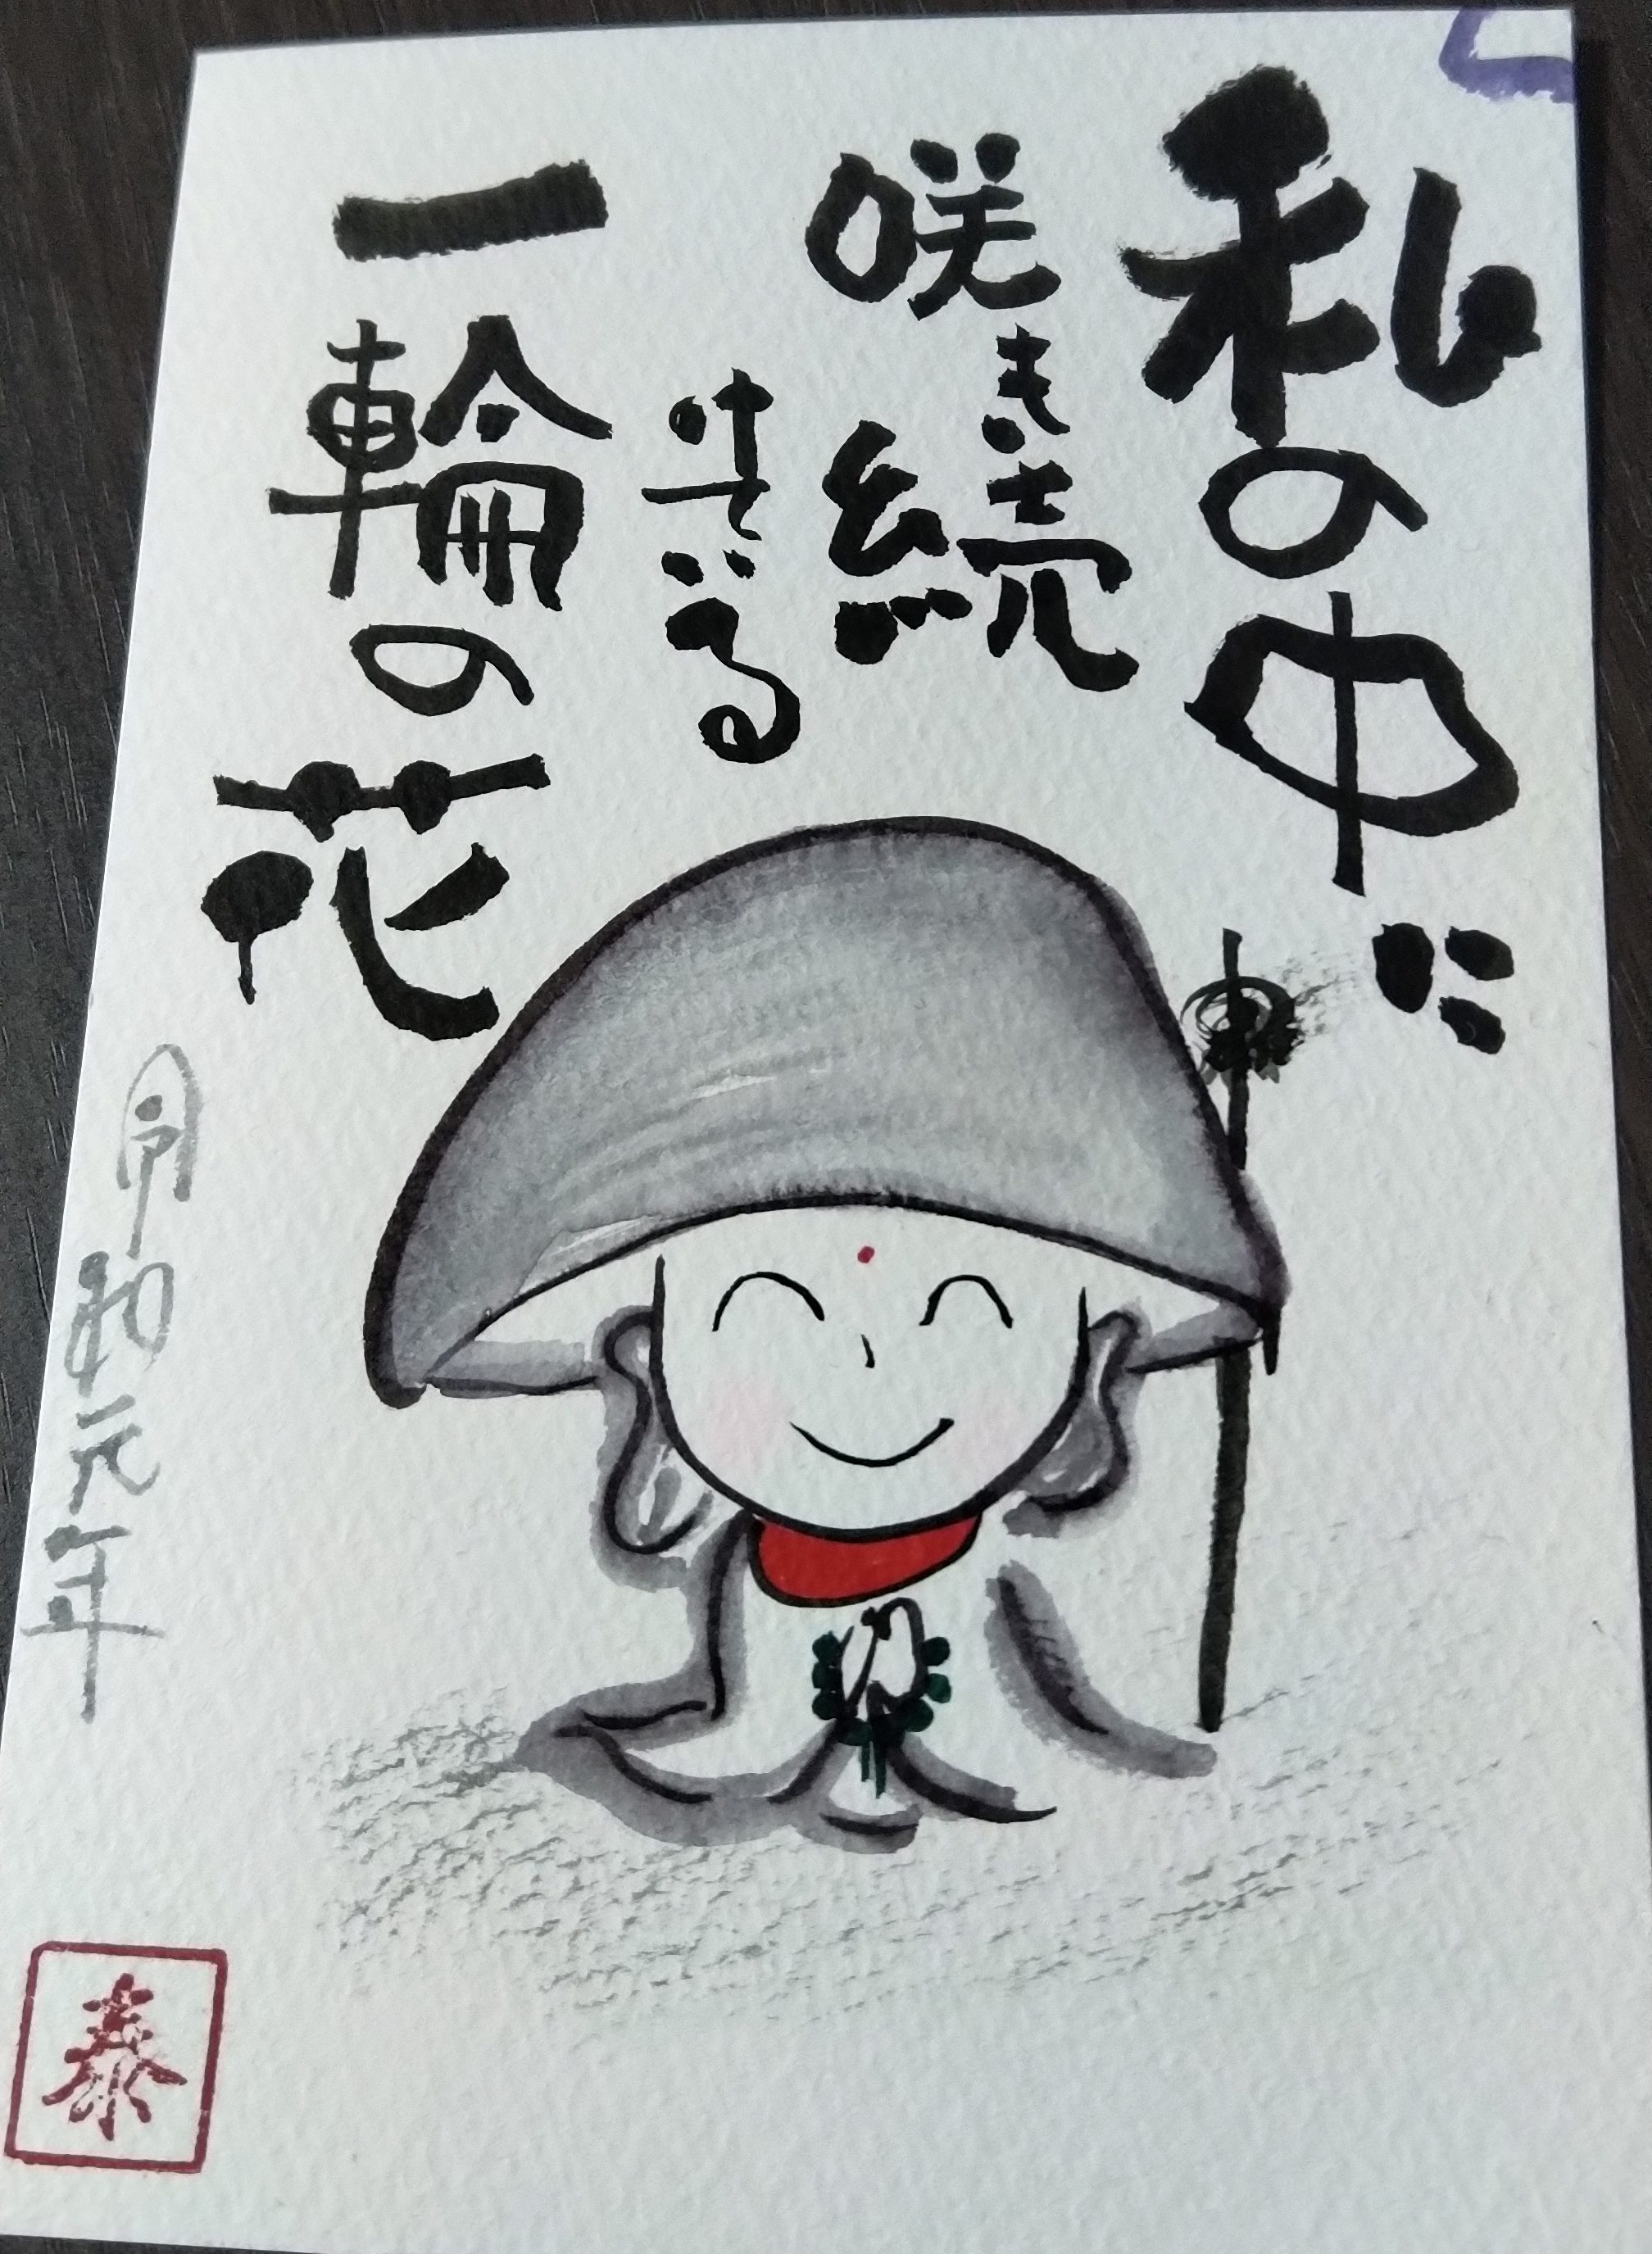 私の中に
咲き続
けている
一輪の花
令和元年
泰